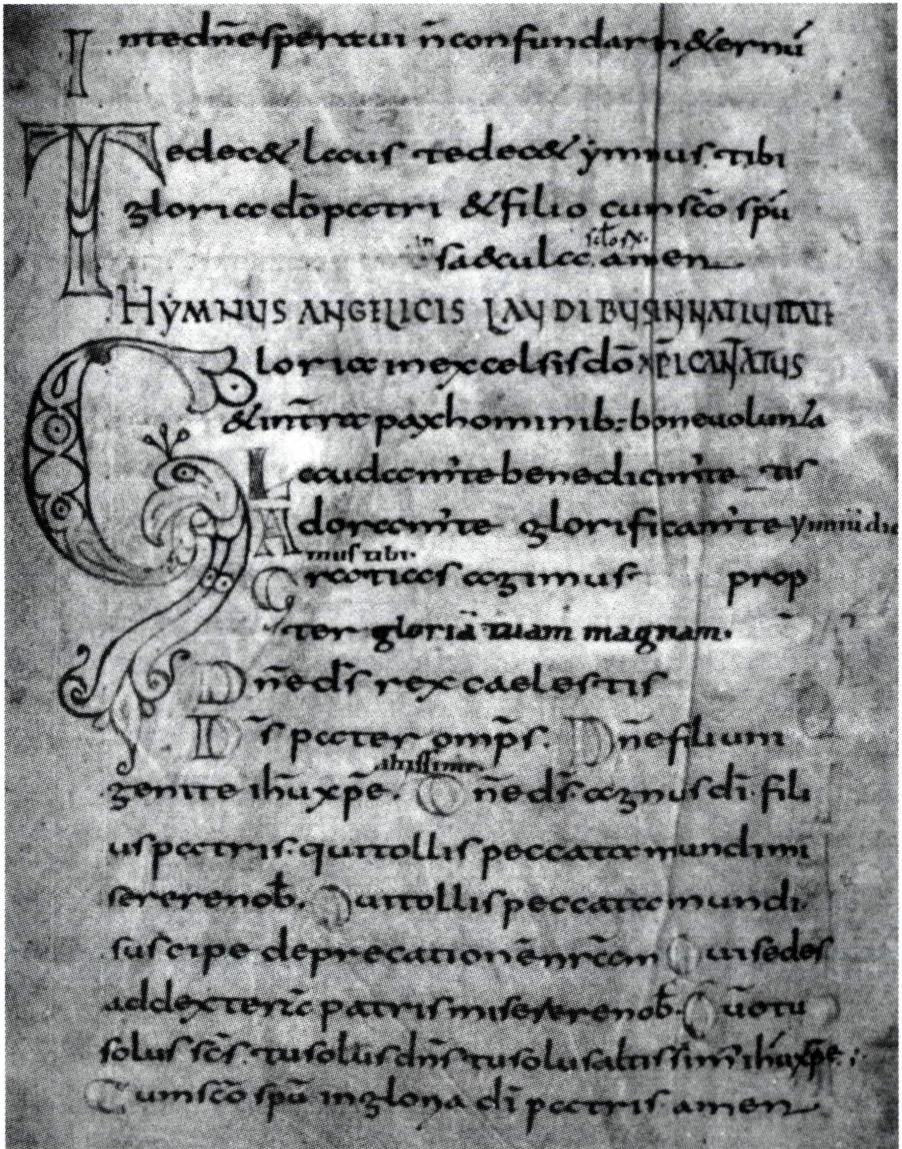 In te dn̄e speraui n̄ confundar in &ernū
Te dec& laus te dec& ẏmnus tibi
gloria dō patri & filio cum scō spū
in sclōrx
saecula amen
HẎMNUS ANGELICIS LAUDIBUS IN NATIUITATE
Gloria in excelsis dō XP̄I CANTATUS
& in trā pax hominib: bone uolunta
Laudam' te benedicim' te tis
Adoram' te glorificam' te
mus tibi.
Gratias agimus prop
ter gloriā tuam magnam.
Dn̄e ds̄ rex caelestis
Ds̄ pater omp̄s. Dn̄e filium
altissime.
genite ihū xp̄e. Dn̄e ds̄ agnus dī. fili
us patris. qui tollis peccata mundi mi
serere nob̄. Qui tollis peccata mundi.
suscipe deprecationē nrām Qui sedes
ad dexterā patris miserere nob̄. Qūō tu
solus scs̄. tu solus dn̄s tu solus altissim' ihū xp̄e
Cum scō spū in gloria dī patris. amen